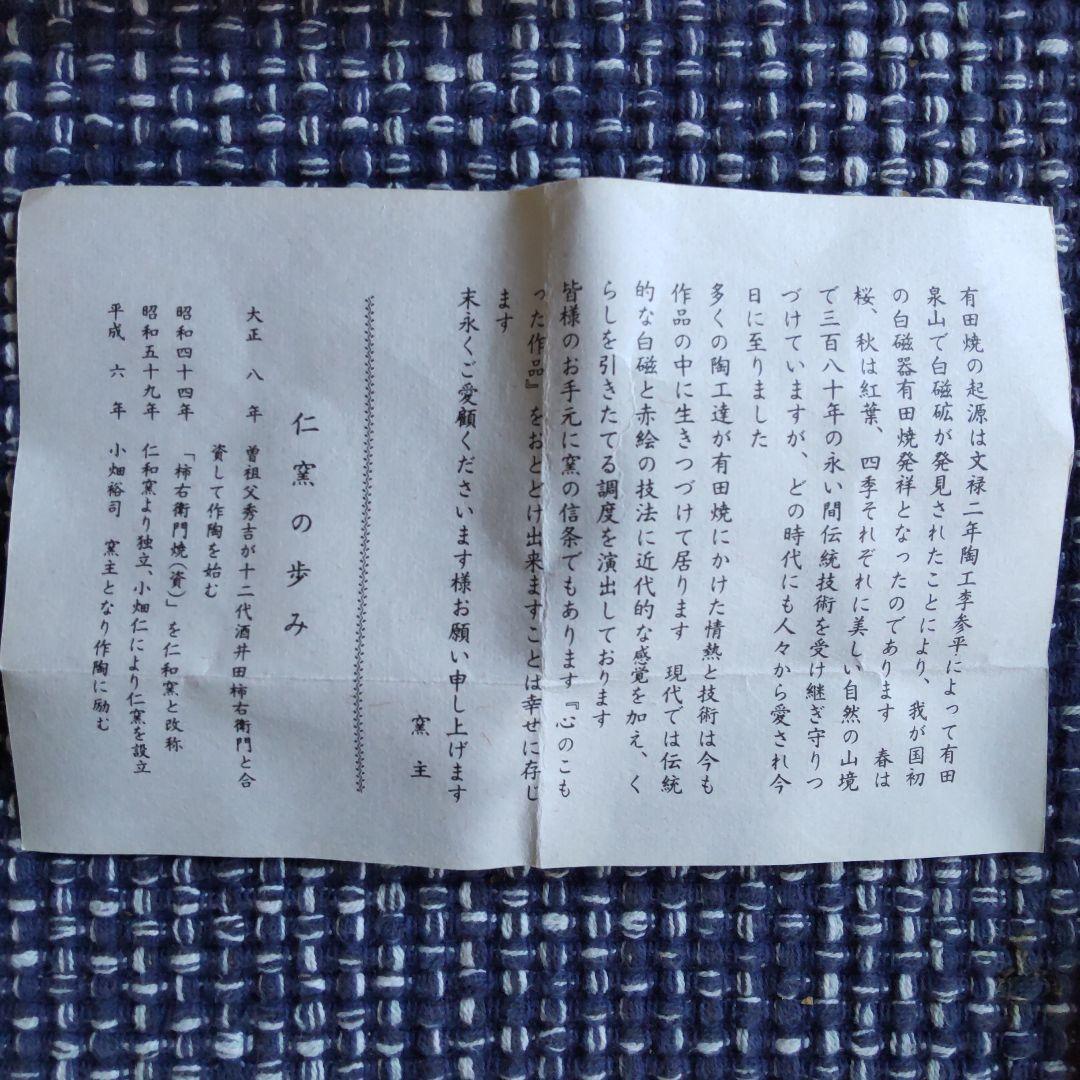 有田焼の起源は文禄二年陶工李参平によって有田
泉山で白磁砿が発見されたことにより、我が国初
の白磁器有田焼発祥となったのであります　春は
桜、秋は紅葉、四季それぞれに美しい自然の山境
で三百八十年の永い間伝統技術を受け継ぎ守りつ
づけていますが、どの時代にも人々から愛され今
日に至りました
多くの陶工達が有田焼にかけた情熱と技術は今も
作品の中に生きつづけて居ります　現代では伝統
的な白磁と赤絵の技法に近代的な感覚を加え、く
らしを引きたてる調度を演出しております
皆様のお手元に窯の信条でもあります『心のこも
った作品』をおとどけ出来ますことは幸せに存じ
ます
末永くご愛顧くださいます様お願い申し上げます
窯　主
仁窯の歩み
大正　八　年　曽祖父秀吉が十二代酒井田柿右衛門と合
資して作陶を始む
昭和四十四年　「柿右衛門焼（資）」を仁和窯と改称
昭和五十九年　仁和窯より独立、小畑仁により仁窯を設立
平成　六　年　小畑裕司　窯主となり作陶に励む